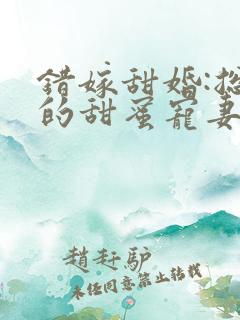 错嫁甜婚:总
的甜蜜宠妻
赵赶驴
未经同意禁止转载